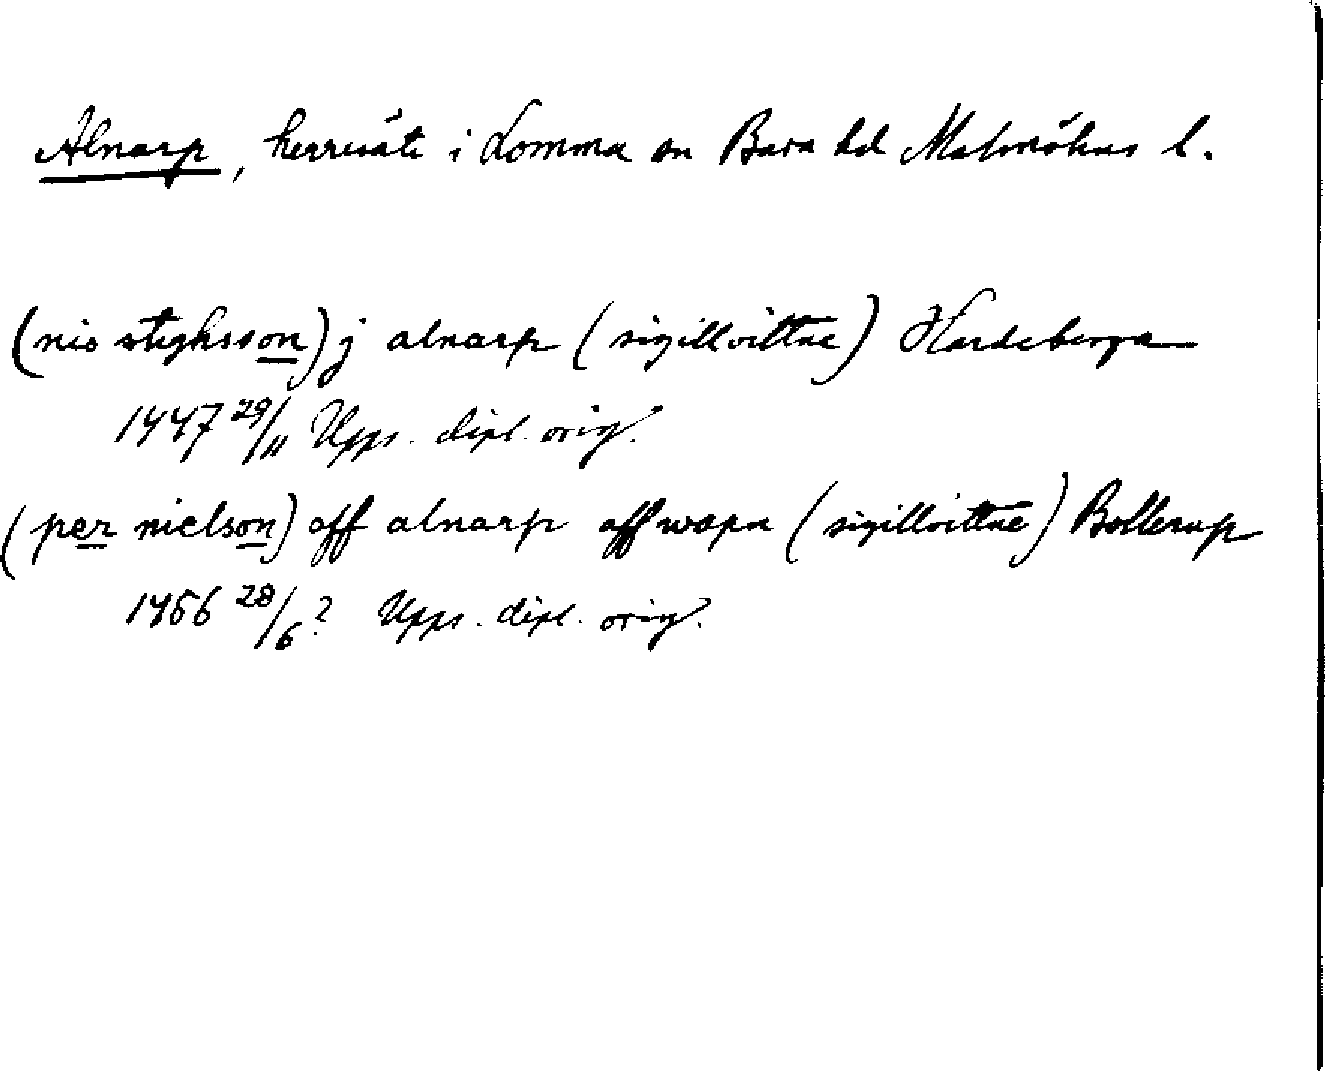 Alnarp, herresäte i Lomma sn Bara hd Malmöhus l.
(nis stighsson) j alnarp (sigillvittne) Hardeberga
1447 29/11 Upps. dipl. orig.
(per nielson) off alnarp aff wapn (sigillvittne) Bollerup
1456 28/6? Upps. dipl. orig.